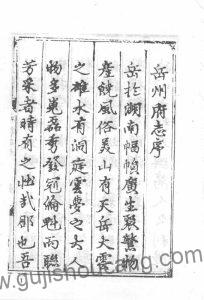 岳州府志序
岳於湖南幅幀廣生聚繁物
產饒風俗美山有天岳大雲
之雄水有洞庭雲夢之大人
物多瑰磊奇發冠倫魁而聯
芳采者時有之壯哉郡也吾
www.gujishoucang.com